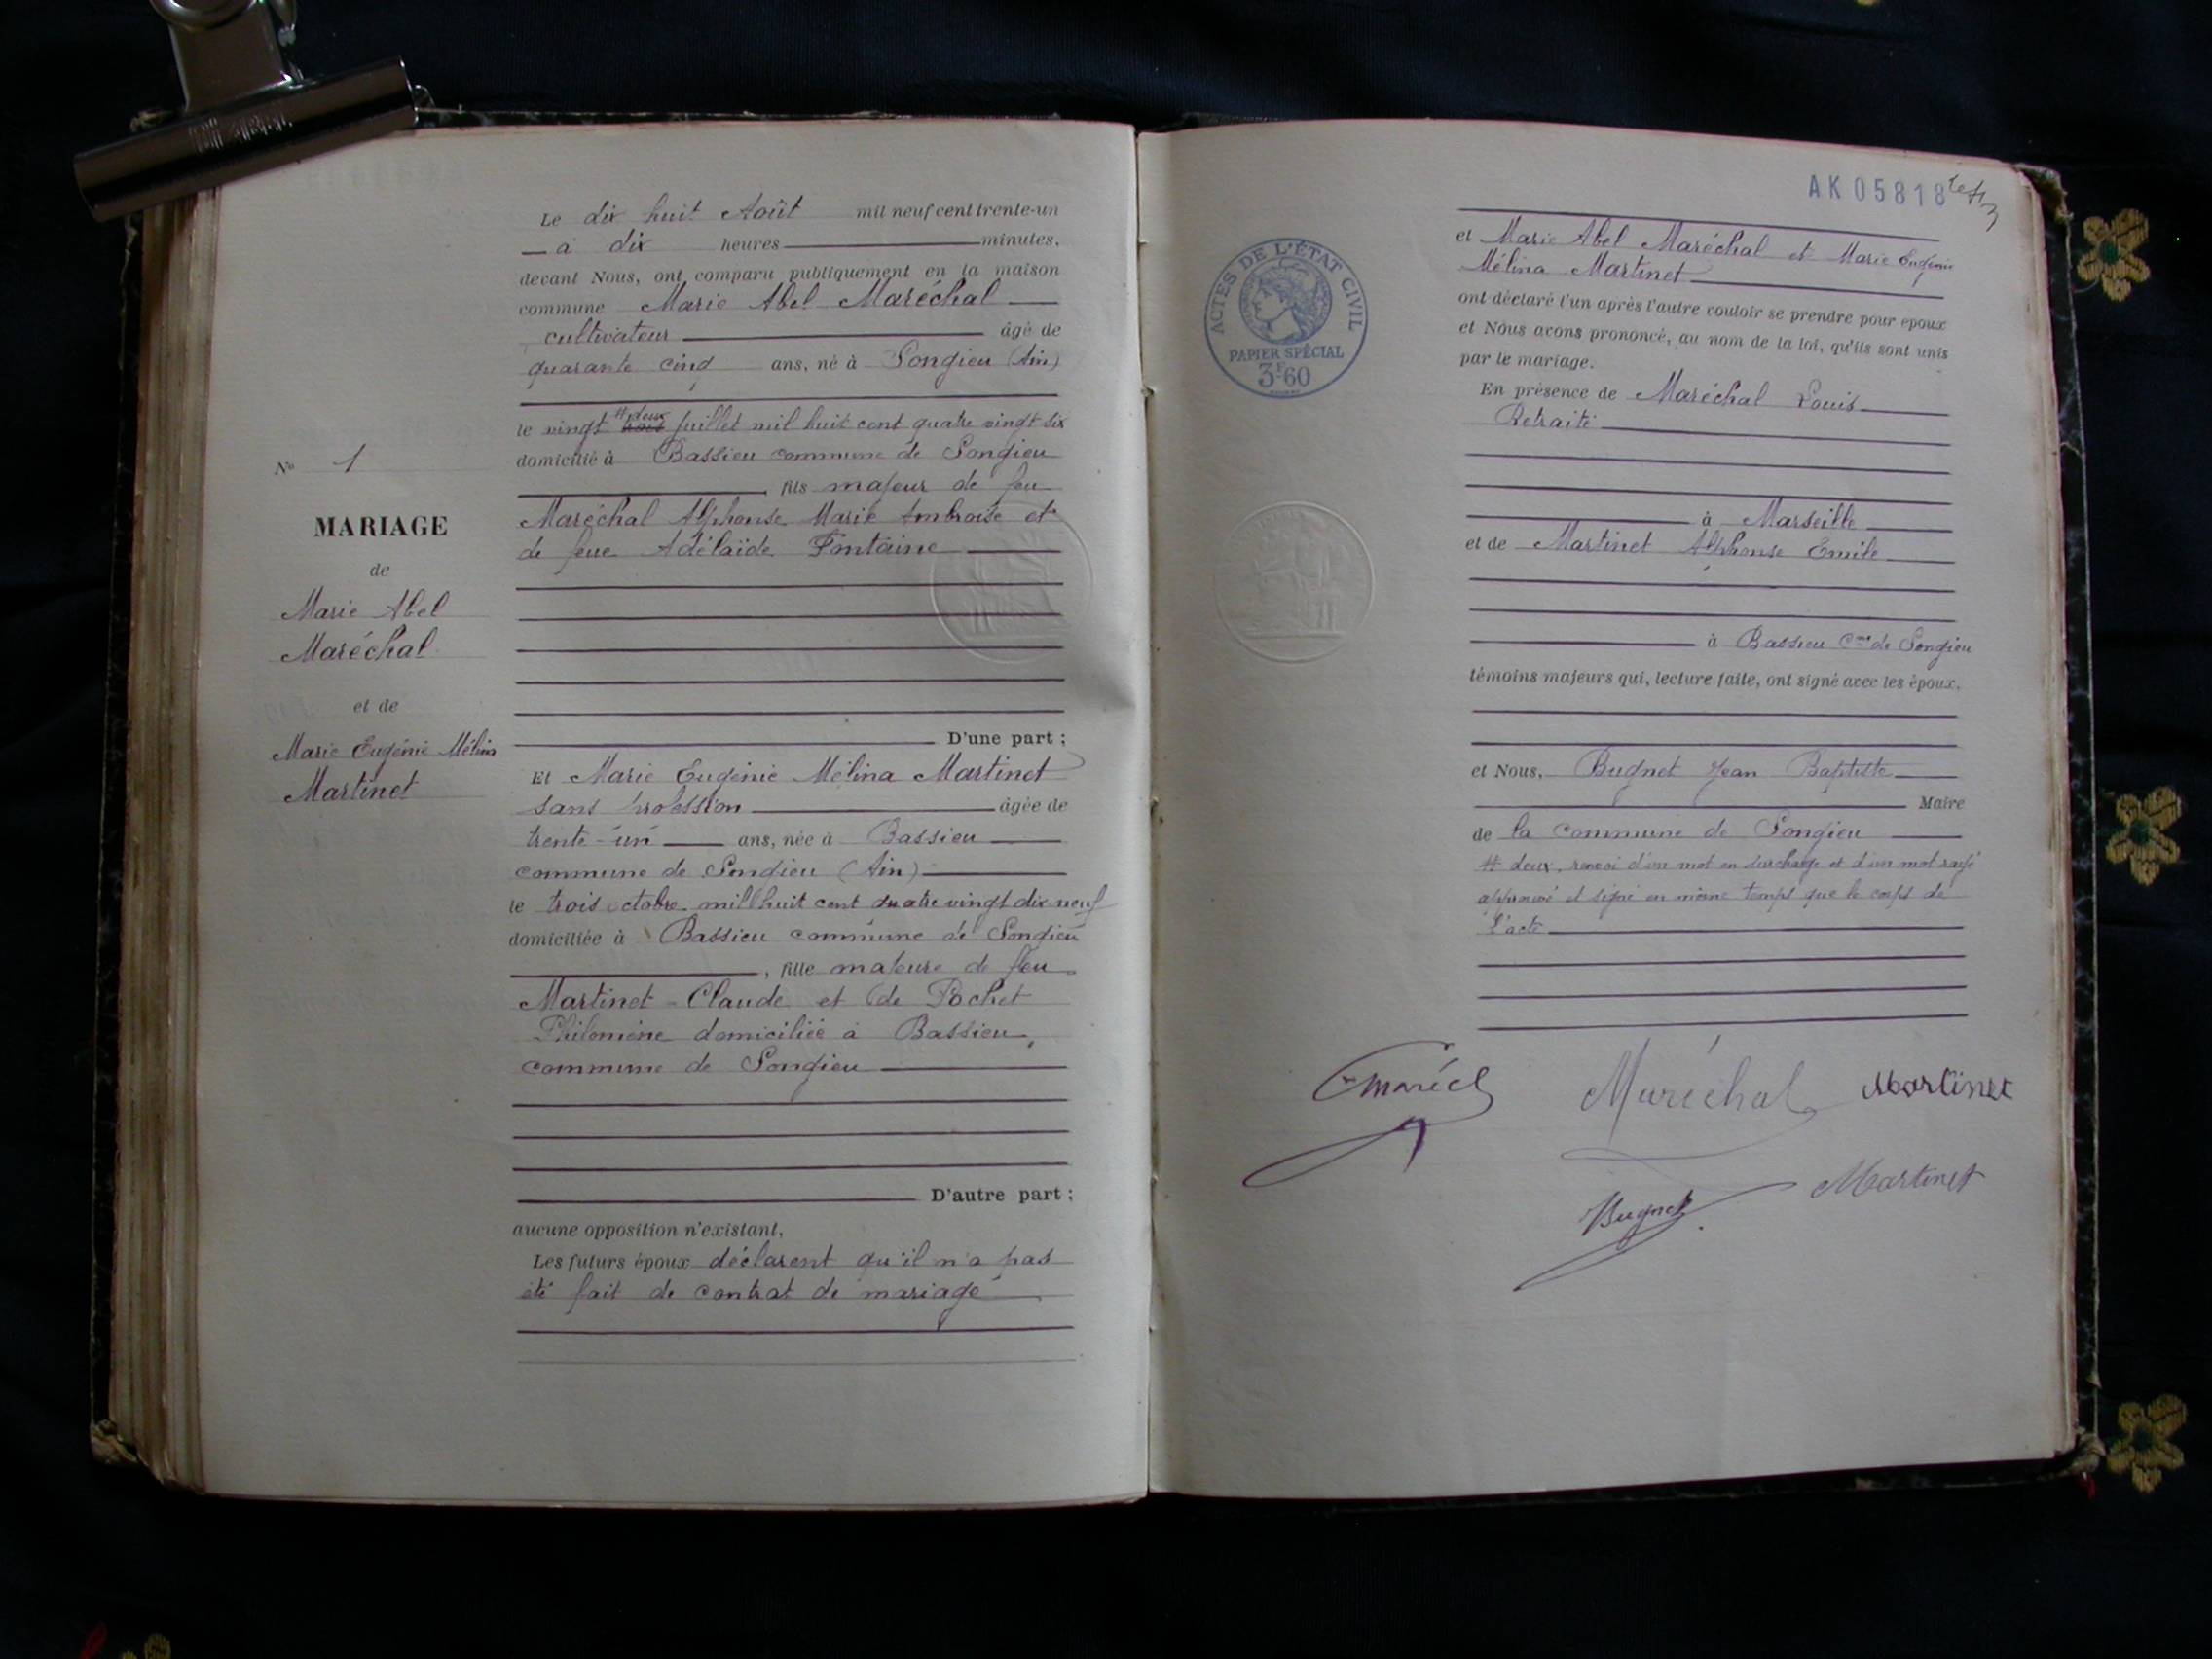 Le dix huit Août mil neuf cent trente-un
à dix heures minutes,
devant Nous, ont comparu publiquement en la maison
commune Marie Abel Maréchal
cultivateur âgé de
quarante cinq ans, né à Songieu (Ain)
# deux
le vingt trois juillet mil huit cent quatre vingt six
domicilié à Bassieu commune de Songieu
, fils majeur de feu
Maréchal Alphonse Marie Ambroise et
de feue Adélaïde Fontaine
D'une part ;
Et Marie Eugénie Mélina Martinet
sans profession âgée de
trente-un ans, née à Bassieu
commune de Songieu (Ain)
le trois octobre mil huit cent quatre vingt dix neuf
domiciliée à Bassieu commune de Songieu
, fille majeure de feu
Martinet Claude et de Pochet
Philomène domiciliée à Bassieu,
commune de Songieu
D'autre part ;
aucune opposition n'existant,
Les futurs époux déclarent qu'il n'a pas
été fait de contrat de mariage
N° 1
MARIAGE
de
Marie Abel
Maréchal
et de
Marie Eugénie Mélina
Martinet
AK 05818
ACTES DE L'ÉTAT CIVIL
PAPIER SPÉCIAL
3F60
et Marie Abel Maréchal et Marie Eugénie
Mélina Martinet
ont déclaré l'un après l'autre vouloir se prendre pour époux
et Nous avons prononcé, au nom de la loi, qu'ils sont unis
par le mariage.
En présence de Maréchal Louis
Retraité
à Marseille
et de Martinet Alphonse Emile
à Bassieu Cne de Songieu
témoins majeurs qui, lecture faite, ont signé avec les époux,
et Nous, Bugnet Jean Baptiste
Maire
de la commune de Songieu
# deux, renvoi d'un mot en surcharge et d'un mot rayé
approuvé et signé en même temps que le corps de
l'acte
Maréchal Martinet
Bugnet Martinet